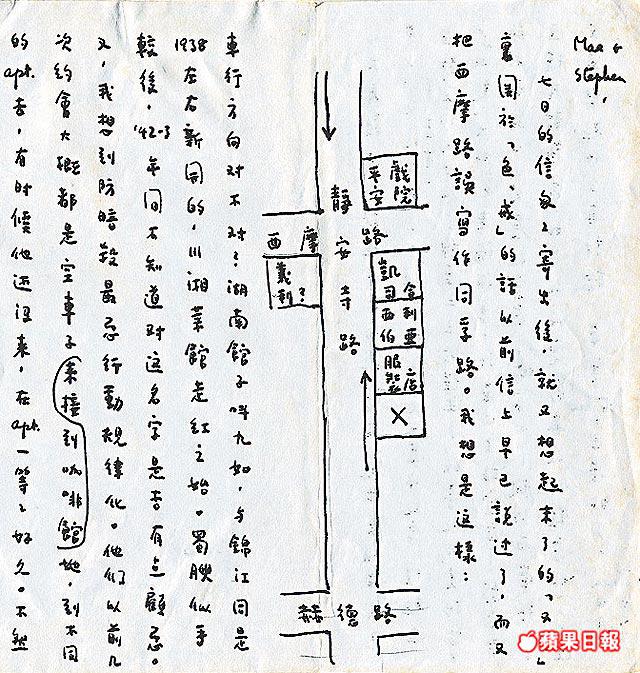 Mae &
Stephen,
七日的信匆匆寄出後，就又想起来了的，「又」
裏関於「色，戒」的話以前信上早已說过了，而又
把西摩路誤寫作同孚路。我想是这樣：
平安戲院
静安寺路
西摩路
戴利？
凱司令
西伯利亚
服裝店
X
赫德路
車行方向对不对？湖南館子叫九如，与錦江同是
1938左右新開的，川湘菜館走红之始。蜀腴似乎
較後，'42-3年间不知道对这名字是否有点顧忌。
又，我想到防暗殺最忌行動規律化。他們以前几
次約會大概都是空車子來接到咖啡館她，到不同
的apt.去，有时候他还没来，在apt.一等々好久。不然
蘋果日報